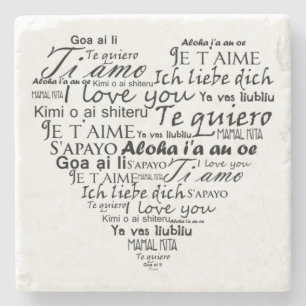 Goa ai li
Te quiero Aloha i'a au oe
Ti amo JE T'AIME
Aloha i'a au oe
Kimi o ai shiteru Ich liebe dich
MAHAL KITA I love you Ya vas liubliu
Kimi o ai shiteru Te quiero
JE T'AIME MAHAL KITA
S'APAYO Aloha i'a au oe
Goa ai li S'APAYO I love you
JE T'AIME MAHAL KITA Ti amo
Ich liebe dich S'APAYO
Te quiero I love you
Kimi o ai shiteru Aloha i'a au oe
Ya vas liubliu
MAHAL KITA
Te quiero
Goa ai li